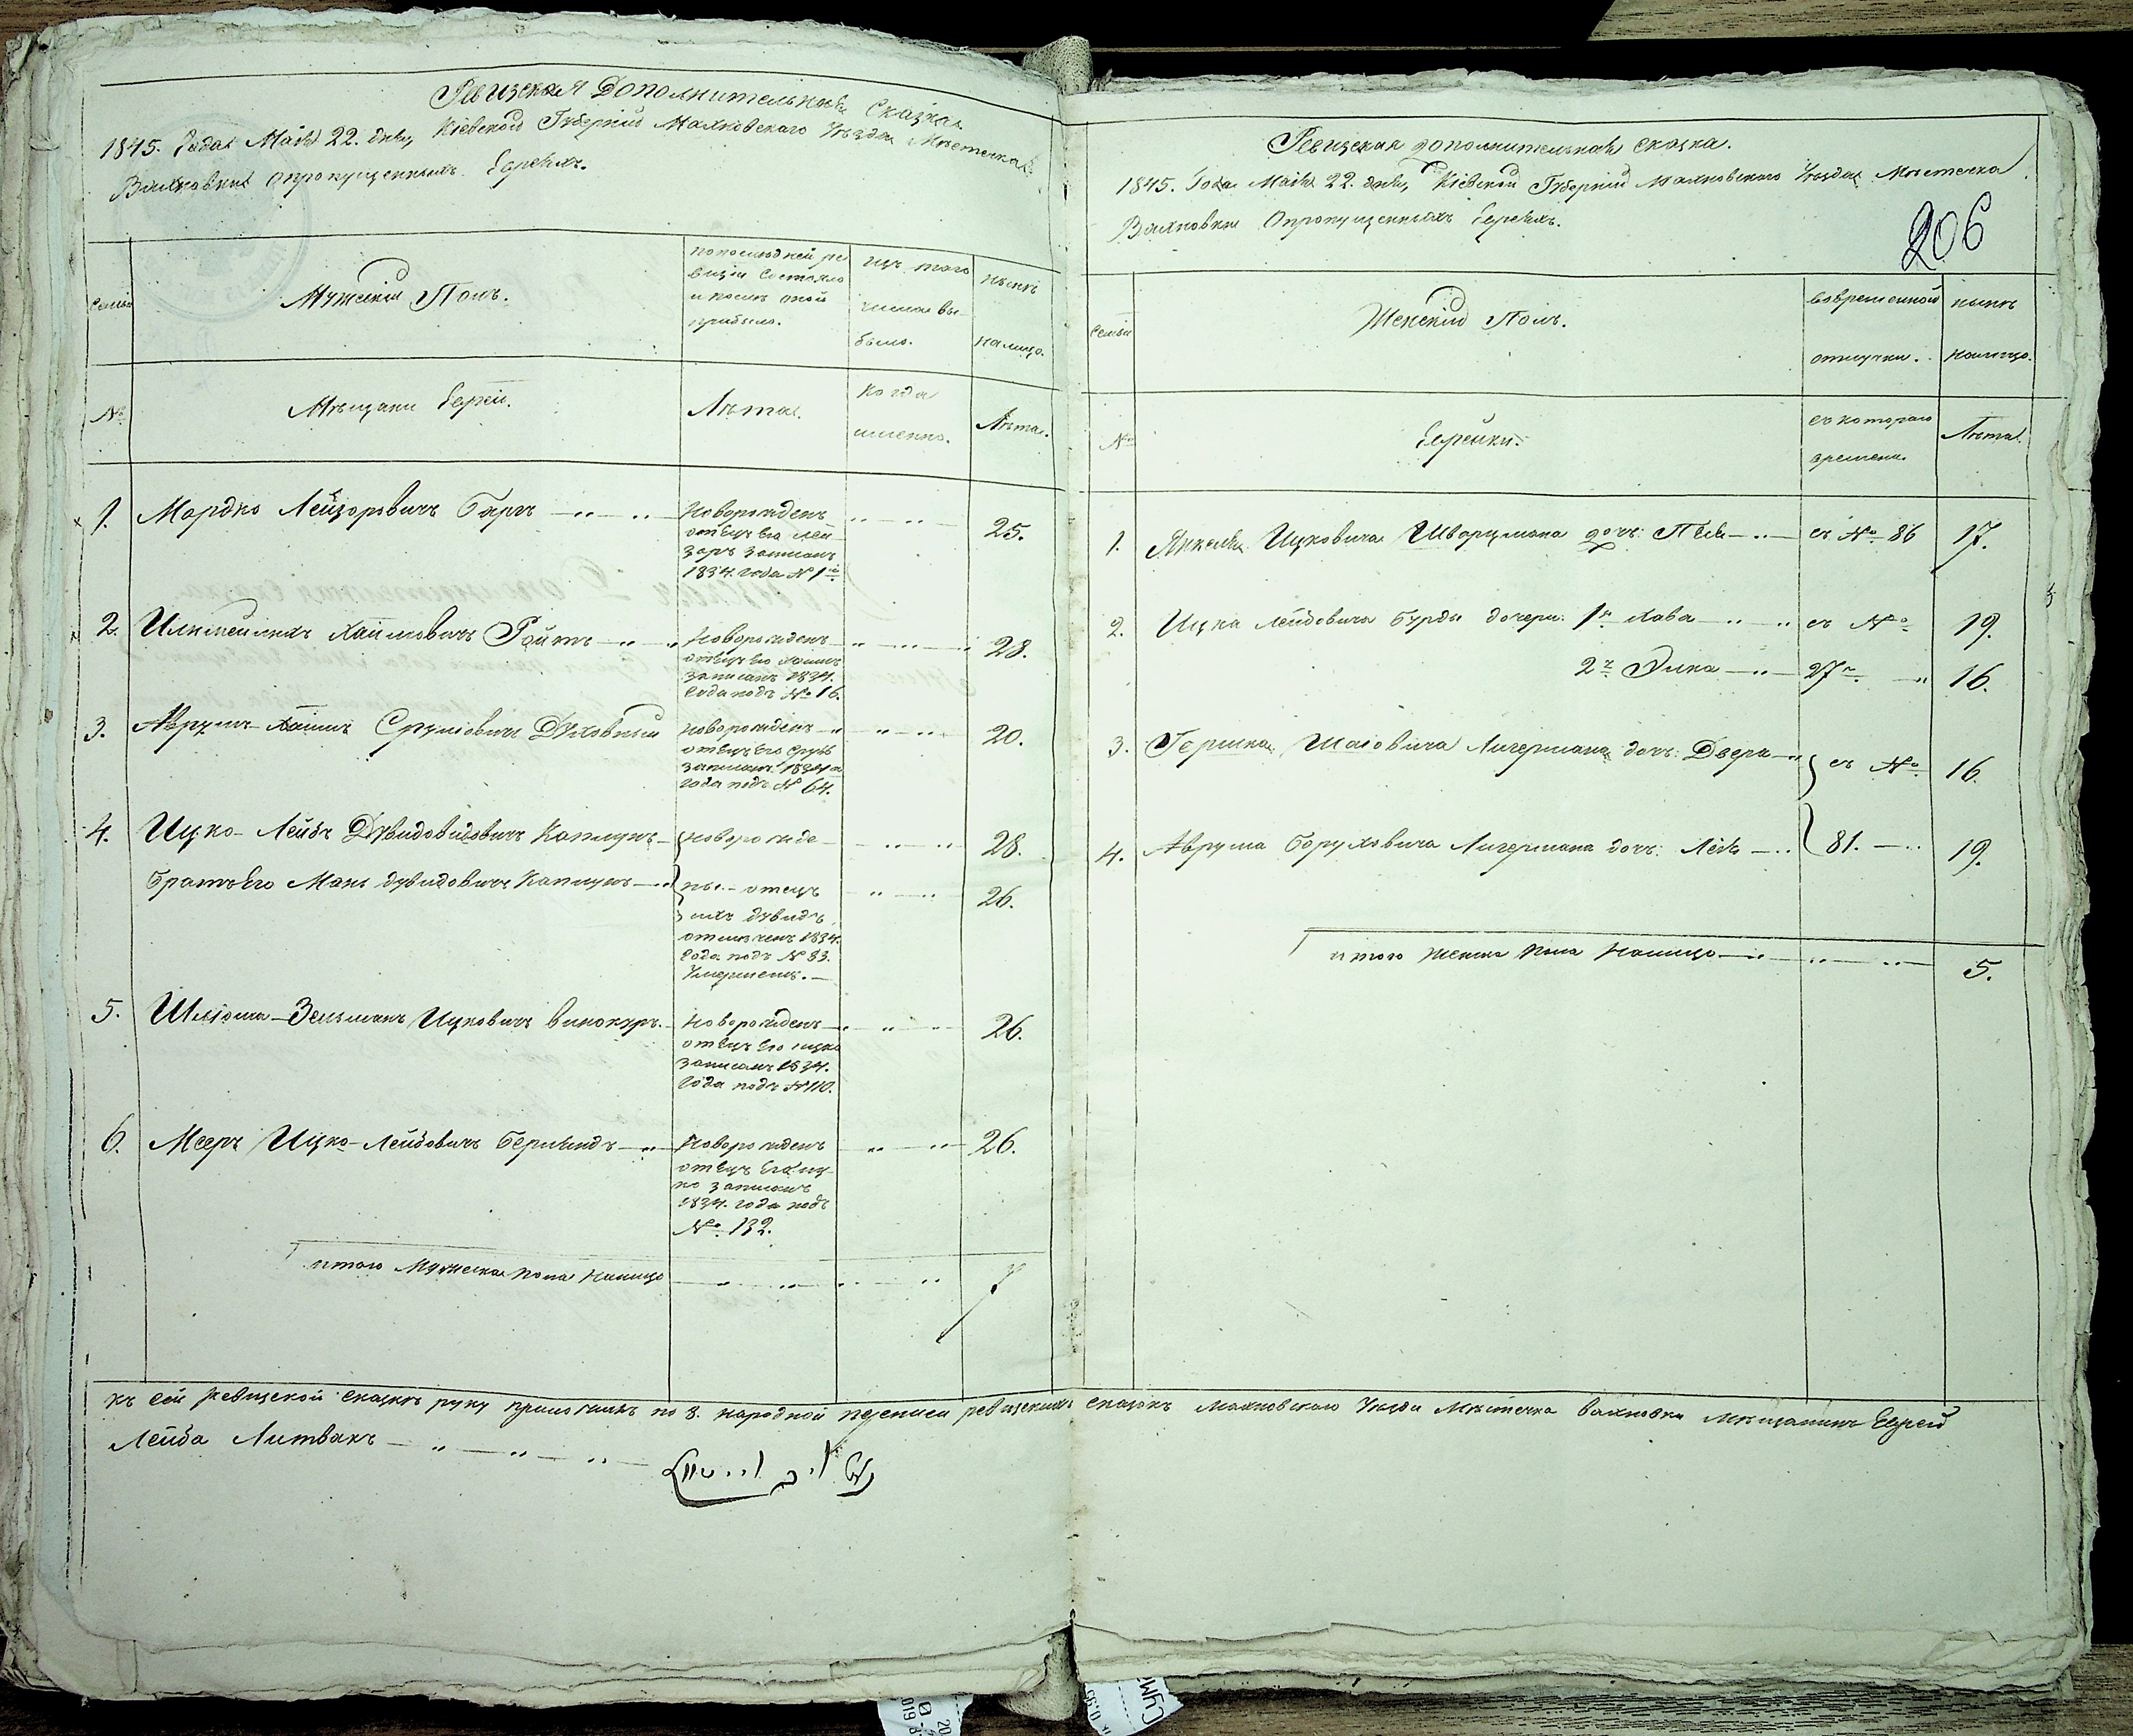 Ревизская Дополнительная Сказка
1845. Года Маія 22. дня, Кіевской Губерніи Махновскаго Уезда Местечка
Вахновки Опропущенныхъ Евреяхъ.
Семьи
Мужескій Полъ.
попоследней ре
визіи состояло
и после оной
прибыло.
изъ того
числа вы
было.
ныне
налицо.
№
Мещани Евреи.
Лета.
Когда
именно.
Лета.
1. Мордко Лейзоровичъ Боргъ
Новорожденъ
отецъ его Лей
заръ записанъ
1834. года № 1й
25.
2. Хаимовичъ Ройтъ
Новорожденъ
отецъ его Хаимъ
записанъ 1834.
Года подъ № 16.
28.
3. Аврумъ Хаимъ Сруловичъ Духовный
Новорожденъ
отецъ его Сруль
записанъ 1834
года подъ № 64.
20.
4. Ицко-Лейбъ Дувидовичъ Каплунъ
новорожде
28.
Братъ Его Мань Дувидовичъ Каплунъ
ны отецъ
26.
ихъ Дувидъ
отмеченъ 1834.
Года подъ № 83.
Умершемъ.
5. Шліома-Зельманъ Ицковичъ Винокуръ
Новорожденъ
отецъ его ицко
записанъ 1834.
Года подъ № 110.
26.
6. Мееръ Ицко-Лейбовичъ
Новорожденъ
отецъ Его иц
ко записанъ
1834. года подъ
№ 132.
26.
итого Мужеска пола Налицо
7
Ревизская дополнительная сказка.
1845. Года Маія 22. дня, Кіевской Губерніи Махновскаго Уезда Местечка
Вахновки Опропущенныхъ Евреяхъ.
206
Семьи
Женскій Полъ.
вовременной
отлучки.
ныне
налицо.
№
Еврейки.
съ котораго
времени.
Лета.
1. Янкеля Ицковича Шварцмана дочь: Песя
съ № 86
17.
2. Ицка Лейбовича Бурды дочери: 1я Хава
съ №
19.
2я Элка
27
16.
3. Гершка Шаговича Лихтермана дочь: Двера
съ №
16.
4. Аврума Боруховича дочь: Лея
81.
19.
итого женска Пола Налицо
5.
къ сей ревизской сказке руку приложилъ по 8. народной переписи ревизскихъ сказокъ Махновского Уезда Местечка Вахновки Мещанинъ Еврей
Лейба Литвакъ